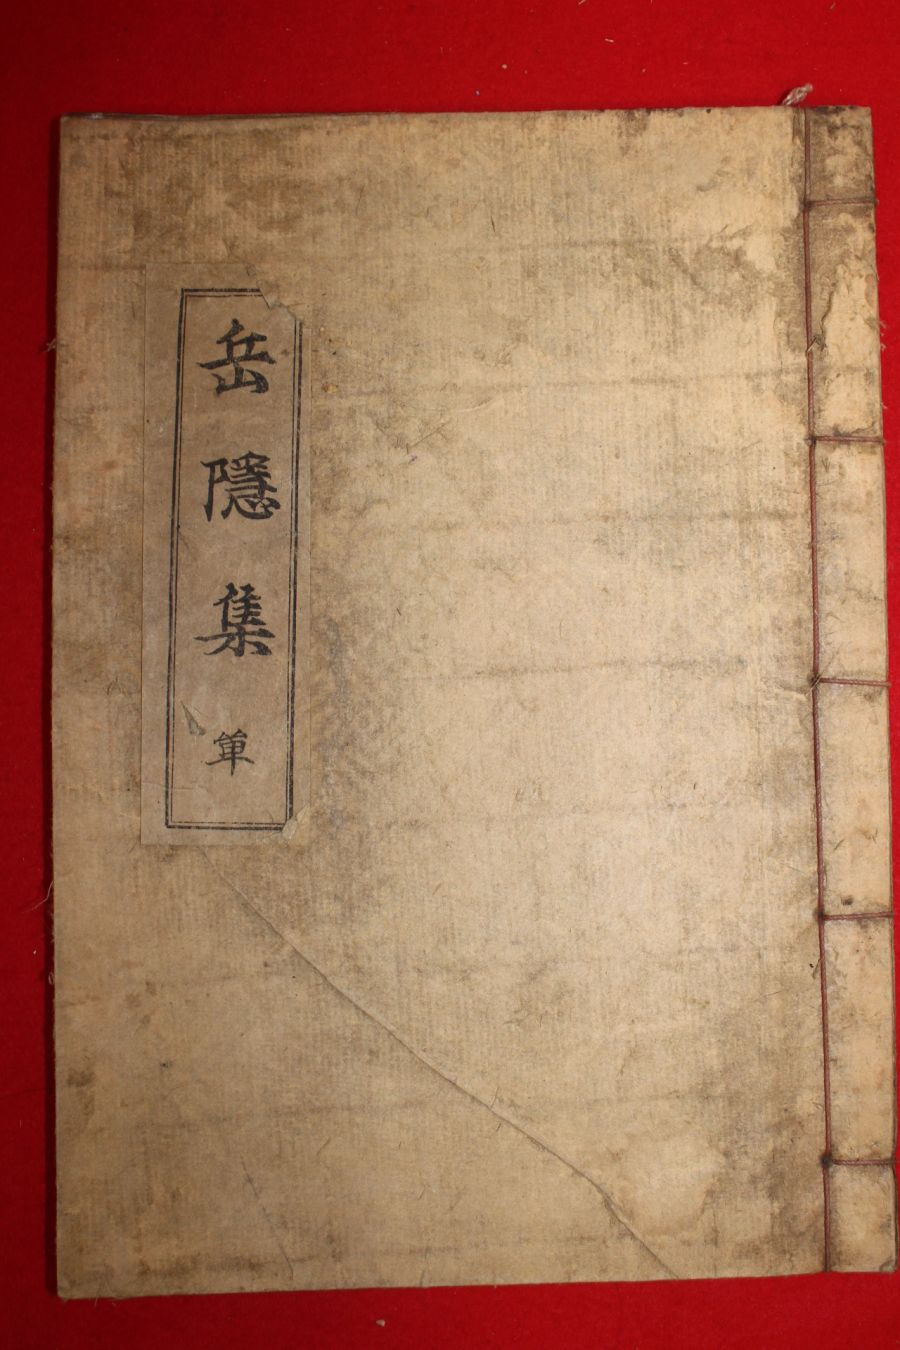 岳隱集
單